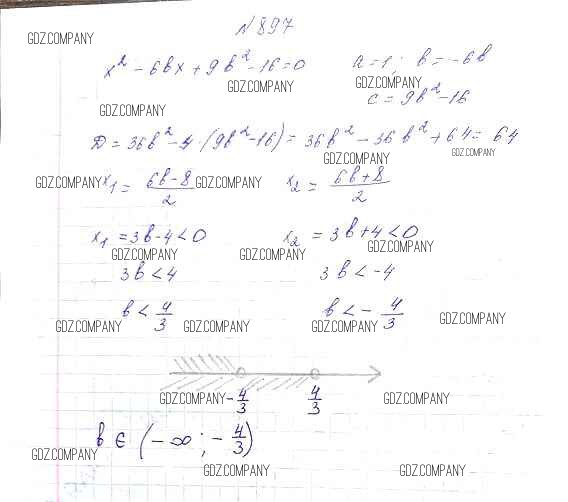 N 897
GDZ.COMPANY
x² - 6bx + 9b² - 16 = 0 a = 1; b = -6b
GDZ.COMPANY GDZ.COMPANY
GDZ.COMPANY c = 9b² - 16
D = 36b² - 4 (9b² - 16) = 36b² - 36b² + 64 = 64
GDZ.COMPANY GDZ.COMPANY
GDZ.COMPANY x₁ = (6b - 8)/2 GDZ.COMPANY x₂ = (6b + 8)/2
x₁ = 3b - 4 < 0 x₂ = 3b + 4 < 0
GDZ.COMPANY GDZ.COMPANY GDZ.COMPANY
3b < 4 3b < -4
b < 4/3 b < - 4/3
GDZ.COMPANY GDZ.COMPANY GDZ.COMPANY GDZ.COMPANY
GDZ.COMPANY -4/3 4/3 GDZ.COMPANY
b ∈ (-∞; -4/3)
GDZ.COMPANY
GDZ.COMPANY GDZ.COMPANY